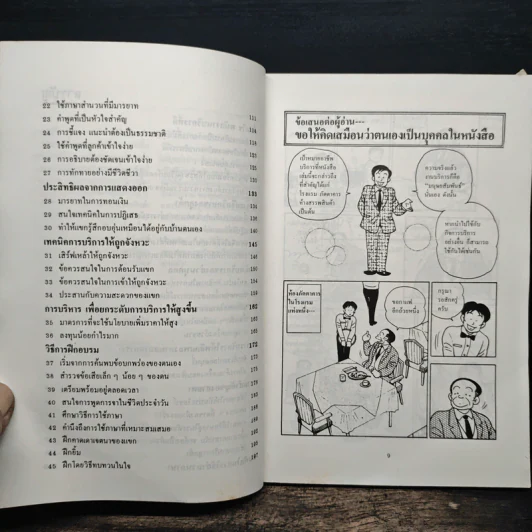 22 ใช้ภาษาสำนวนที่มีมารยาท
23 คำพูดที่เป็นหัวใจสำคัญ 111
24 การชี้แจง แนะนำต้องเป็นธรรมชาติ
25 ใช้คำพูดที่ลูกค้าเข้าใจง่าย
26 การอธิบายต้องชัดเจนเข้าใจง่าย
27 การทักทายอย่างมีชีวิตชีวา
ประสิทธิผลจากการแสดงออก
28 มารยาทในการทอนเงิน
29 สนใจเทคนิคในการปฏิเสธ
30 ทำให้แขกรู้สึกอบอุ่นเหมือนได้อยู่กับบ้านตนเอง
เทคนิคการบริการให้ถูกจังหวะ 145
31 เสิร์ฟเหล้าให้ถูกจังหวะ
32 ข้อควรสนใจในการต้อนรับแขก
33 ข้อควรสนใจในการเข้าให้ถูกจังหวะ
34 ประสานกับความสะดวกของแขก
การบริหาร เพื่อยกระดับการบริการให้สูงขึ้น 165
35 มาตรการที่จะใช้นโยบายเพิ่มราคาให้สูง
36 ลงทุนน้อยกำไรมาก
วิธีการฝึกอบรม 175
37 เริ่มจากการค้นพบข้อบกพร่องของตนเอง
38 สำรวจข้อเสียเล็ก ๆ น้อย ๆ ของตน
39 เตรียมพร้อมอยู่ตลอดเวลา
40 สนใจการพูดการจาในชีวิตประจำวัน
41 ศึกษาวิธีการใช้ภาษา
42 คำนึงถึงการใช้ภาษาที่เหมาะสมเสมอ
43 ฝึกคาดเดาเจตนาของแขก
44 ฝึกยิ้ม
45 ฝึกโดยวิธีทบทวนในใจ 197
ข้อเสนอต่อผู้อ่าน---
ขอให้คิดเสมือนว่าตนเองเป็นบุคคลในหนังสือ
เป้าหมายอาชีพ
บริการซึ่งหนังสือ
เล่มนี้จะกล่าวถึง
ที่สำคัญได้แก่
โรงแรม ภัตตาคาร
ห้างสรรพสินค้า
เป็นต้น
ความจริงแล้ว
งานบริการก็คือ
"มนุษยสัมพันธ์"
นั่นเอง ดังนั้น
หากนำไปใช้กับ
กิจการบริการ
อย่างอื่น ก็สามารถ
ใช้กันได้เช่นกัน
ห้องภัตตาคาร
ในโรงแรม
แห่งหนึ่ง...
ขอกาแฟ
อีกถ้วยหนึ่ง
กรุณา
รอสักครู่
ครับ
9